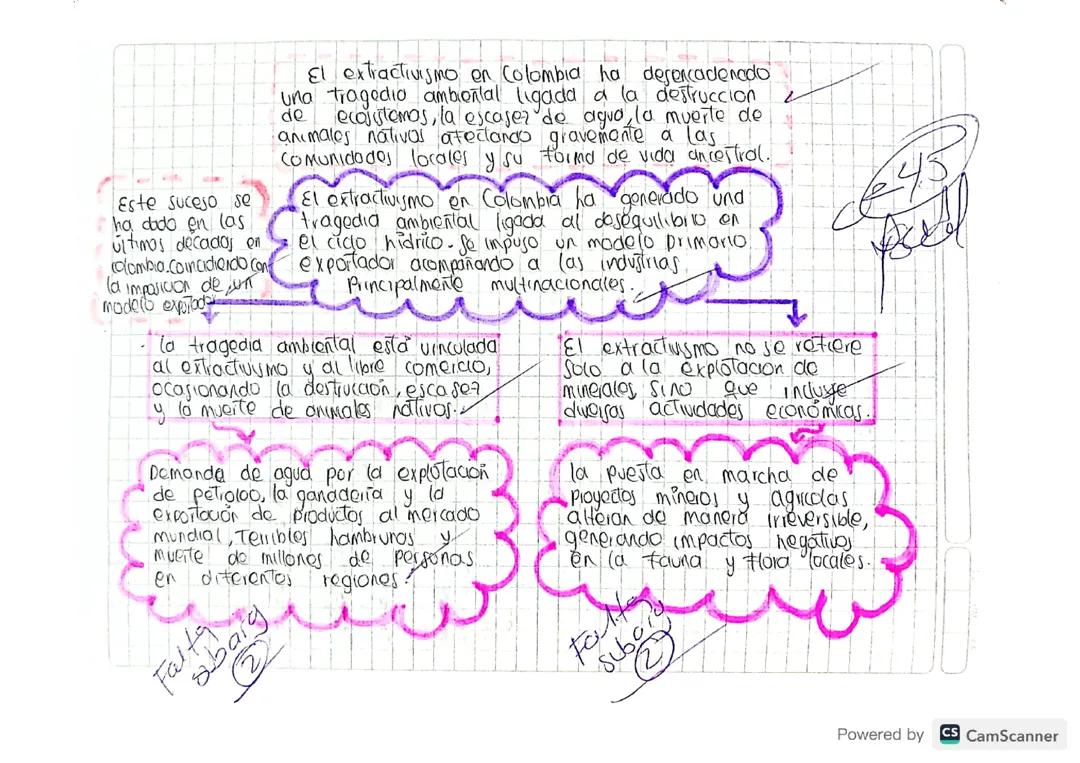 El extractivismo en Colombia ha desencadenado
una tragedia ambiental ligada a la destruccion
de ecosistemas, la escasez de agua, la muerte de
animales nativos afectando gravemente a las
comunidades locales y su forma de vida ancestral.
Este suceso se
ha dado en las
últimas decadas en
colombia. Coincidiendo con
la imposicion de un
modelo exportador
El extractivismo en Colombia ha generado una
tragedia ambiental ligada al desequilibrio en
el ciclo hídrico. Se impuso un modelo primario
exportador acompañando a las industrias
Principalmente multinacionales.
4.5
la tragedia ambiental está vinculada
al extractivismo y al libre comercio,
ocasionando la destrucción, escasez
y la muerte de animales nativos.
El extractivismo no se refiere
solo a la explotación de
minerales, sino que incluye
diversas actividades económicas.
Demanda de agua por la explotación
de petroleo, la ganadería y la
exportación de productos al mercado
mundial, Terribles hambrunas y
muerte de millones de personas
en diferentes regiones.
la puesta en marcha de
Proyectos mineros y agrícolas
alteran de manera irreversible,
generando impactos negativos
en la fauna y flora locales.
Falta
subarg
2
Falta
subarg
2
Powered by CS CamScanner